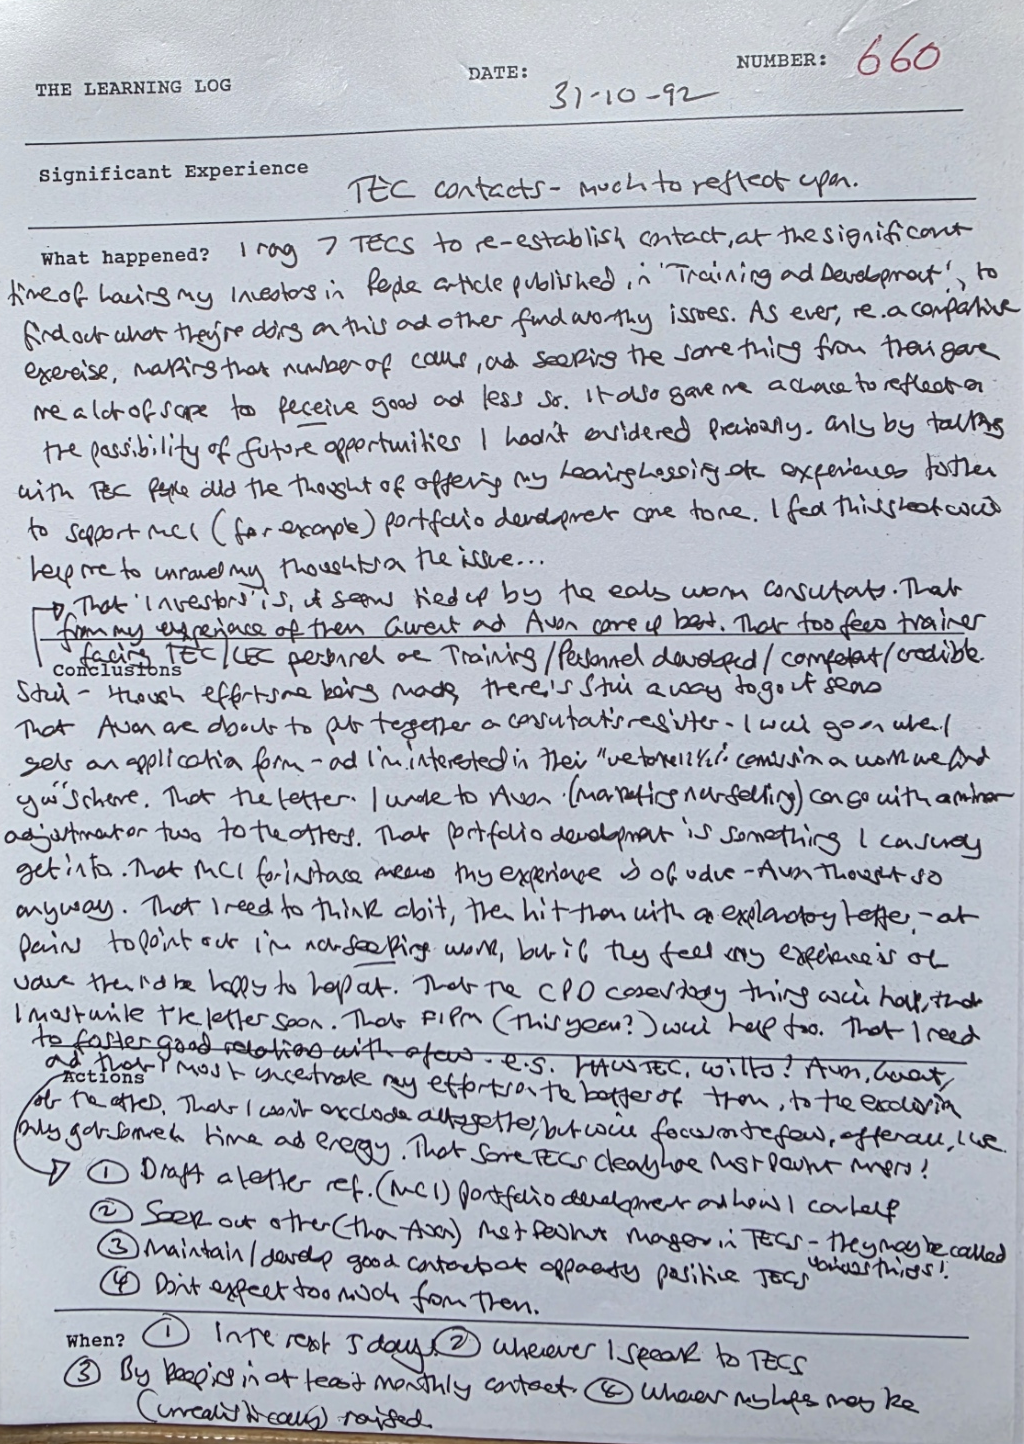 THE LEARNING LOG DATE: 31-10-92 NUMBER: 660
Significant Experience TEC contacts - much to reflect upon.
What happened? I rang 7 TECS to re-establish contact, at the significant
time of having my Investors in People article published, in 'Training and Development', to
find out what they're doing on this and other fund worthy issues. As ever, re. a comparative
exercise, making that number of calls, and seeking the same thing from them gave
me a lot of scope to receive good and less so. It also gave me a chance to reflect on
the possibility of future opportunities I hadn't considered previously. Only by talking
with TEC people did the thought of offering my etc experiences to them
to support MCI (for example) portfolio development come to me. I feel this sheet could
help me to unravel my thoughts on the issue...
That 'Investors' is, it seems tied up by the early worm consultants. That
from my experience of them Gwent and Avon come up best. That too few trainer
facing TEC/LEC personnel are Training/Personnel developed/competent/credible.
Conclusions
Still - though efforts are being made, there's still a way to go it seems
That Avon are about to put together a consultants register - I will go on when I
get an application form - and I'm interested in their commission on work we find
you" scheme. That the letter I wrote to Avon (marketing not selling) can go with a minor
adjustment or two to the others. That portfolio development is something I can surely
get into. That MCI for instance means my experience is of value - Avon thought so
anyway. That I need to think a bit, then hit them with an explanatory letter, - at
pains to point out I'm not seeking work, but if they feel my experience is of
value then I'd be happy to help out. That the CPD case study thing will help, that
I must write the letter soon. That FIPM (this year?) will help too. That I need
to foster good relations with a few - e.g. HAWTEC, Wilts? Avon, Gwent,
and that I must concentrate my efforts on the better of them, to the exclusion
Actions
of the others. That I won't exclude altogether, but will focus on the few, after all, I've
only got so much time and energy. That some TECs clearly have managers!
① Draft a letter ref. (MCI) portfolio development and how I can help
② Seek out other (than Avon) manager in TECS - they may be called
various things!
③ Maintain/develop good contacts at apparently positive TECS
④ Don't expect too much from them.
When? ① In the next 5 days. ② Whenever I speak to TECS
③ By keeping in at least monthly contact. ④ Whenever my hopes may be
(unrealistically) raised.